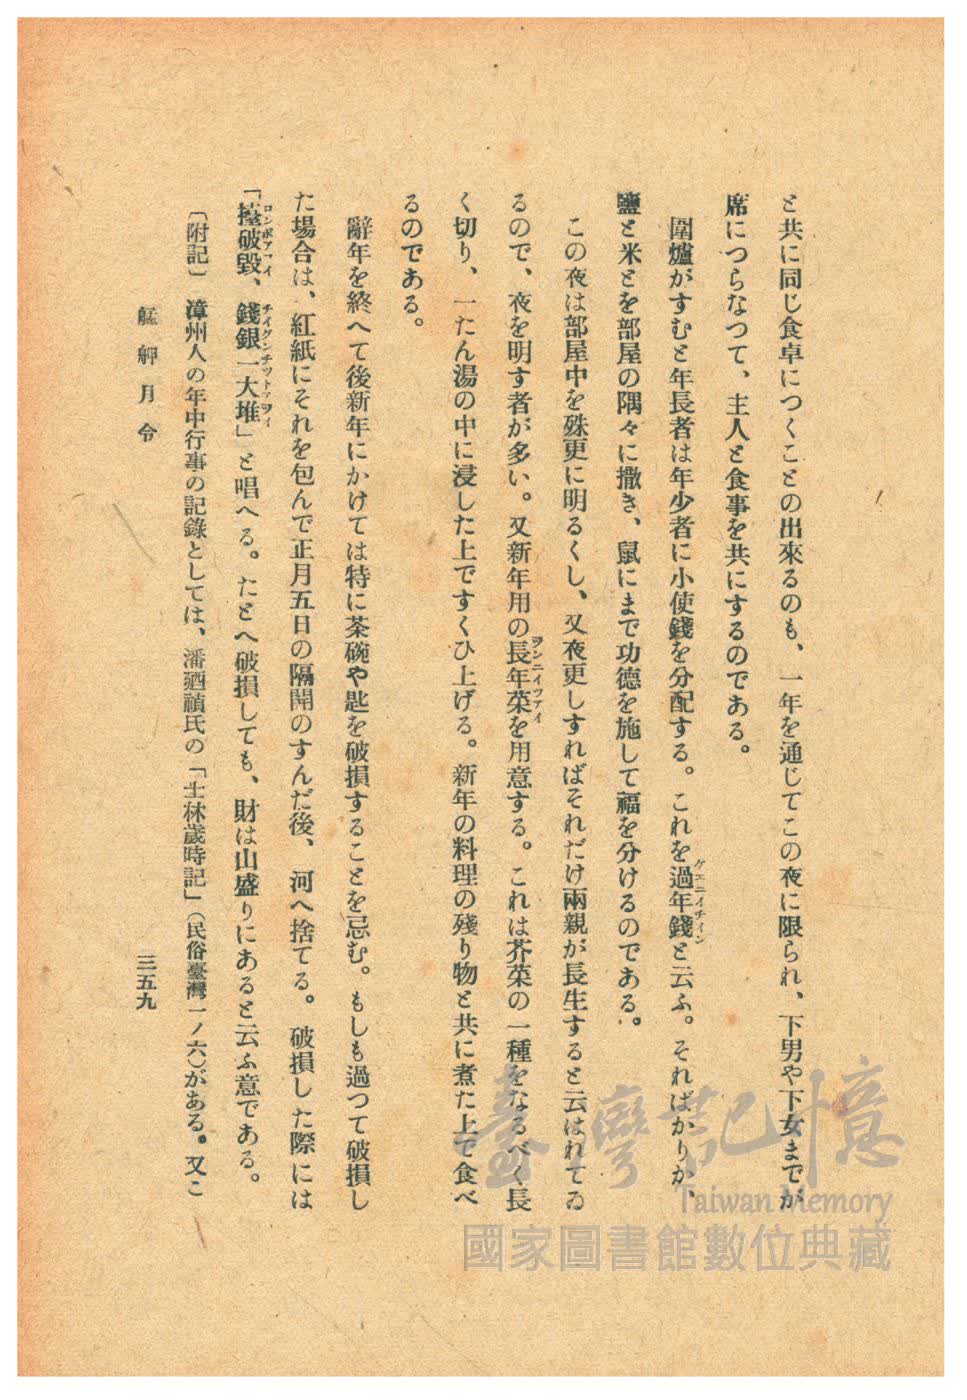 と共に同じ食卓につくことの出來るのも、一年を通じてこの夜に限られ、下男や下女までが
席につらなつて、主人と食事を共にするのである。
圍爐がすむと年長者は年少者に小使錢を分配する。これを過年錢と云ふ。そればかりか、
ケエニイチイン
鹽と米とを部屋の隅々に撒き、鼠にまで功德を施して福を分けるのである。
この夜は部屋中を殊更に明るくし、又夜更しすればそれだけ兩親が長生すると云はれてゐ
るので、夜を明す者が多い。又新年用の長年菜を用意する。これは芥菜の一種をなるべく長
ヲンニイツアイ
く切り、一たん湯の中に浸した上ですくひ上げる。新年の料理の殘り物と共に煮た上で食べ
るのである。
辭年を終へて後新年にかけては特に茶碗や匙を破損することを忌む。もしも過つて破損し
た場合は、紅紙にそれを包んで正月五日の隔開のすんだ後、河へ捨てる。破損した際には
「擡破毀、錢銀一大堆」と唱へる。たとへ破損しても、財は山盛りにあると云ふ意である。
ロンポアフイ チイグンチツトアヲイ
〔附記〕 漳州人の年中行事の記錄としては、潘廼禎氏の「士林歲時記」(民俗臺灣一ノ六)がある。又こ
艋舺月令
三五九
臺灣記憶
Taiwan Memory
國家圖書館數位典藏